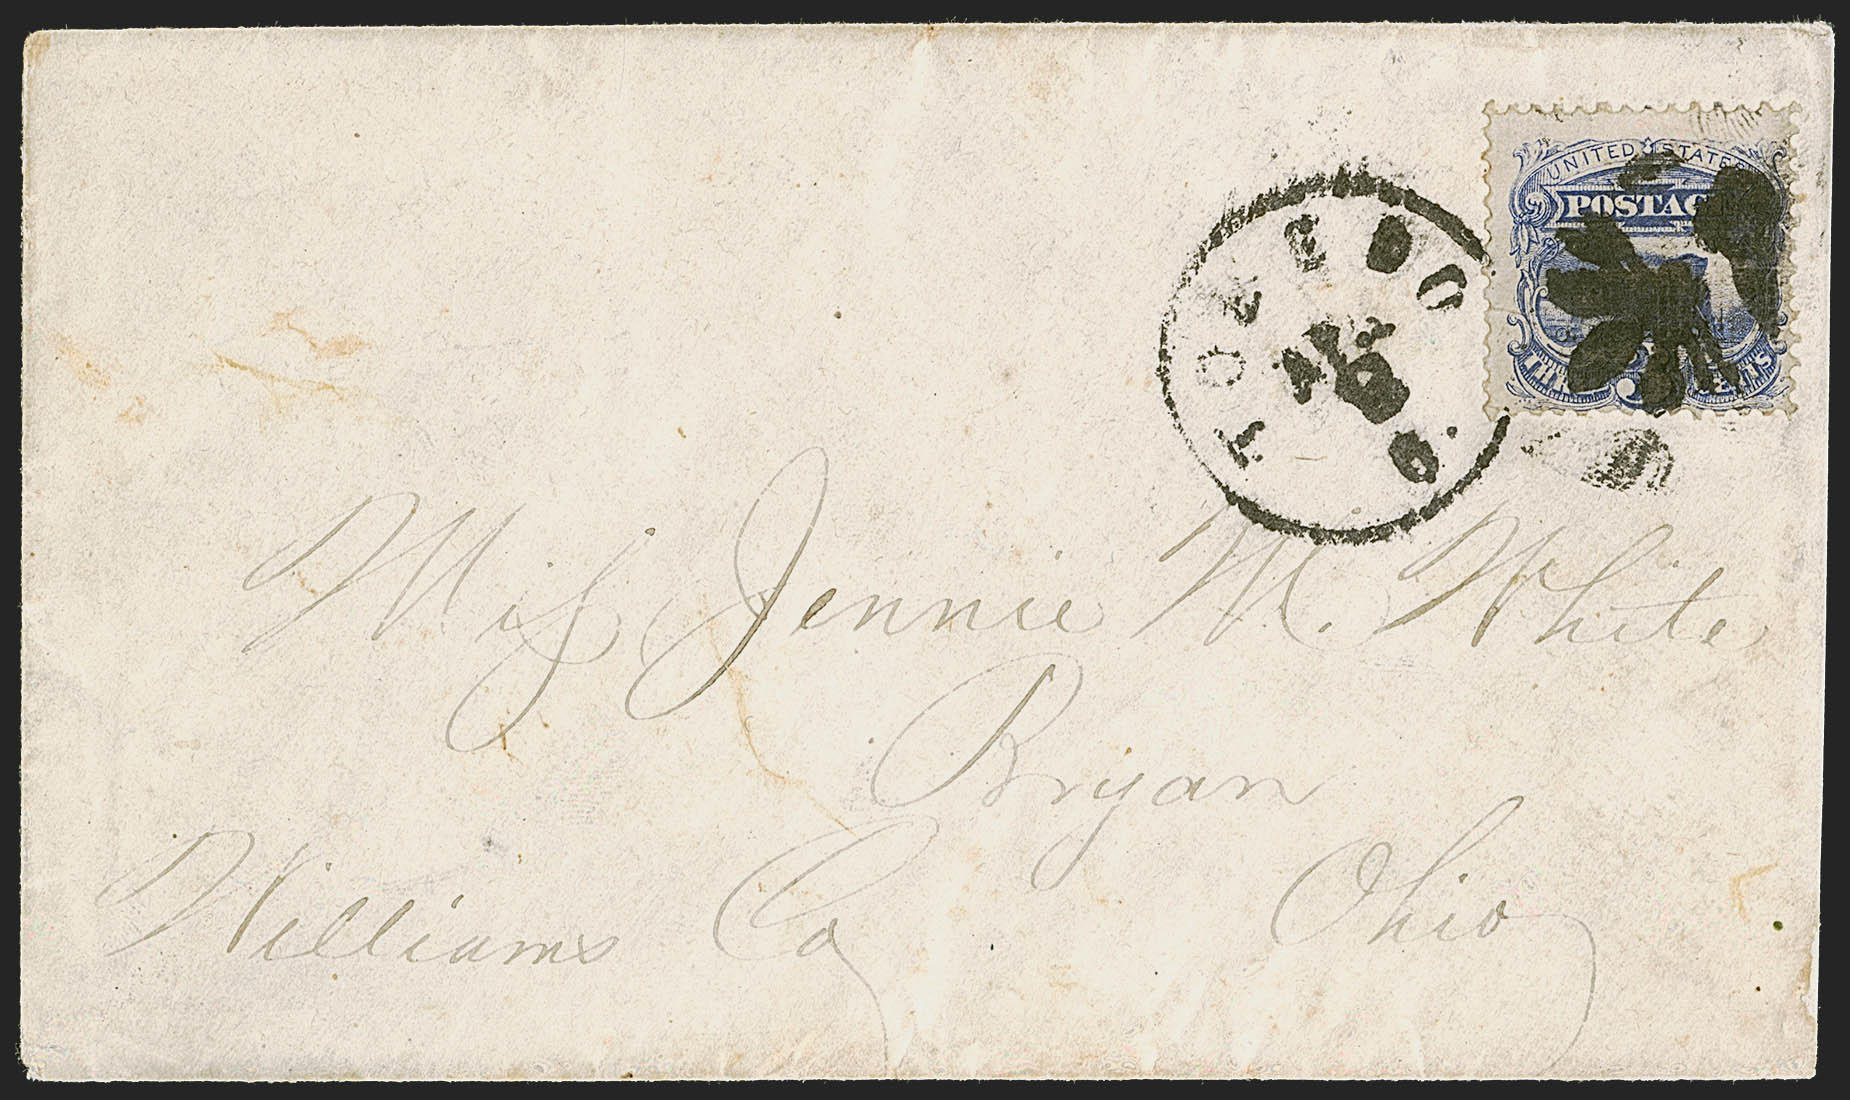 UNITED STATES
POSTAG
THR
TOLEDO
O.
Miſs Jennie M. White
Bryan
Williams Co Ohio